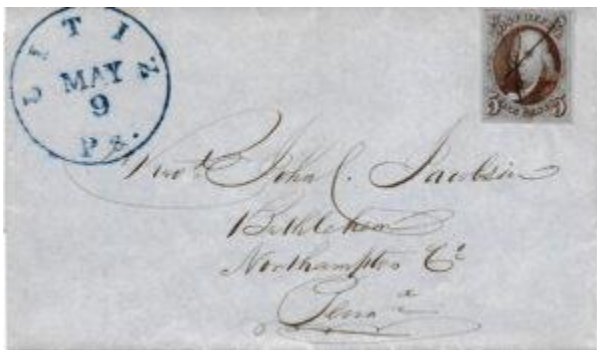 LITIZ
MAY
9
Pa.
POST OFFICE
5 5
Revd. John C. Jacobson
Bethlehem
Northampton Co
Penna